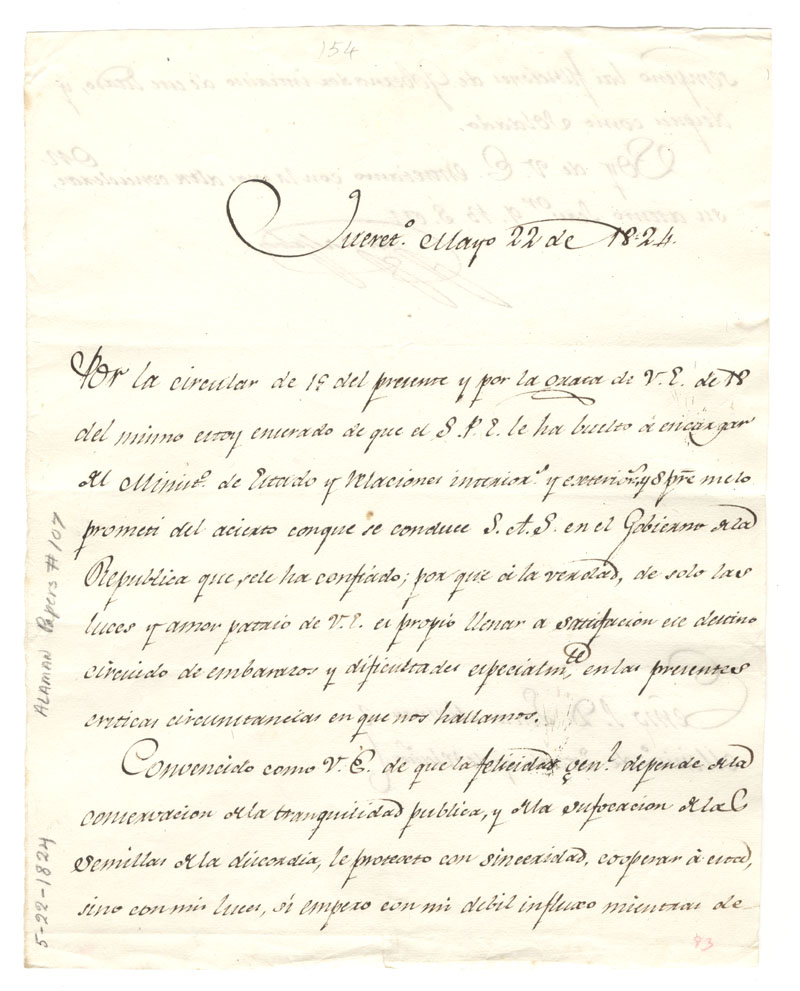 154
Queret.º Mayo 22 de 1824.
Por la circular de 15 del presente y por la oxaca de V.E. de 18
del mismo estoy enterado de que el S.P.E. le ha buelto á encargar
el Minist.º de Estado y Relaciones interior.s y exterior.s, y spre me lo
prometí del acierto conque se conduce S.A.S. en el Gobierno dela
Republica que, sele ha confiado; por que á la verdad, de solo las
luces y amor patrio de V.E. es propio llenar a satisfacion ese destino
circuido de embarazos y dificultades especialm.te, en las presentes
criticas circunstancias en que nos hallamos.
Convencido como V.E. de que la felicidad gen.l depende dela
conservacion dela tranquilidad publica, y dela sufocacion delas
semillas dela discordia, le protexto con sinceridad, cooperar á esta,
sino con mis luces, sí empero con mi debil influxo mientras de
ALAMAN Papers #107
5-22-1824
93